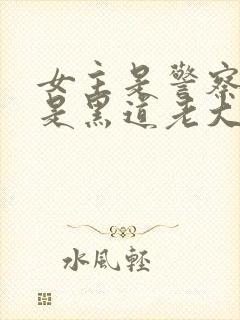 女主是警察
是黑道老大
水風輕